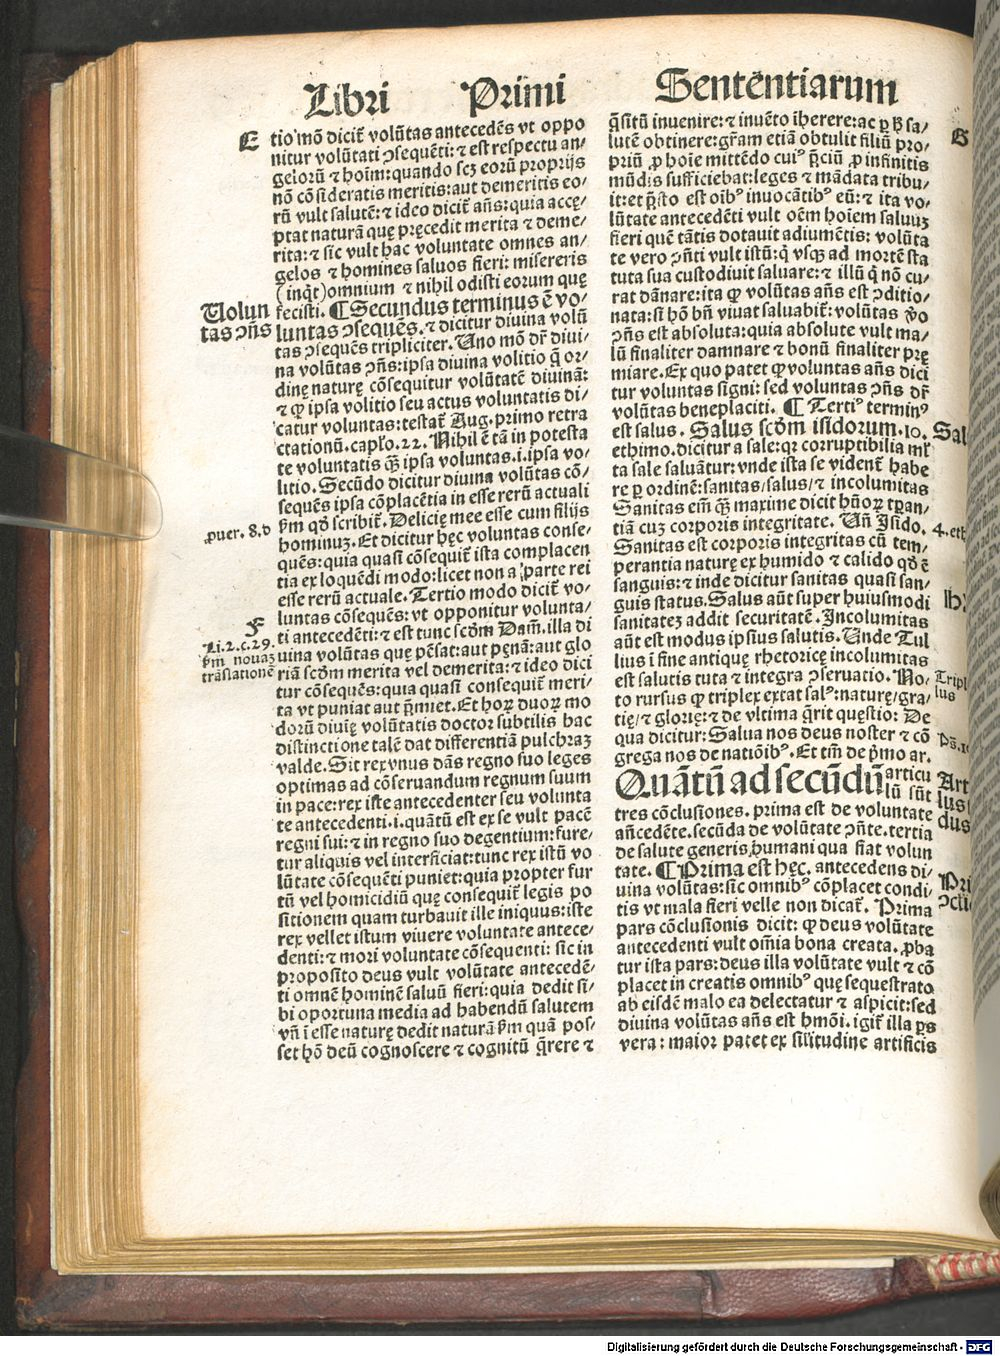 Libri Primi Sententiarum
E
tio mō dicit̄ volūtas antecedēs vt oppo
nitur volūtati ꝯsequēti: ⁊ est respectu an⸗
gelorū ⁊ hoīm: quando scꝫ eorū proprijs
nō cōsideratis meritis: aut demeritis eo⸗
rū vult salutē: ⁊ ideo dicit̄ añs: quia accę⸗
ptat naturā quę pręcedit merita ⁊ deme⸗
rita: ⁊ sic vult hac voluntate omnes an⸗
gelos ⁊ homines saluos fieri: misereris
(inq̄t) omnium ⁊ nihil odisti eorum quę
fecisti. ¶ Secundus terminus ē vo⸗
luntas ꝯsequēs. ⁊ dicitur diuina volū
tas ꝯsequēs tripliciter. Uno mō dr̄ diui⸗
na volūtas ꝯñs: ipsa diuina volitio q̄ or⸗
dinę naturę cōsequitur volūtatē diuinā:
⁊ ꝙ ipsa volitio seu actus voluntatis di⸗
catur voluntas: testat̄ Aug. primo retra
ctationū. caplo. 22. Nihil ē tā in potesta
te voluntatis q̄ꝫ ipsa voluntas .i. ipsa vo⸗
litio. Secūdo dicitur diuina volūtas cō⸗
sequēs ipsa cōplacētia in esse rerū actuali
ꝓm qđ scribit̄. Delicię mee esse cum filijs
hominuꝫ. Et dicitur hęc voluntas conse⸗
quēs: quia quasi cōsequit̄ ista complacen
tia ex loquēdi modo: licet non a parte rei
esse rerū actuale. Tertio modo dicit̄ vo⸗
luntas cōsequēs: vt opponitur volunta⸗
ti antecedēti: ⁊ est tunc scđm Dam̄. illa di
uina volūtas que pēsat: aut pęnā: aut glo
riā scđm merita vel demerita: ⁊ ideo dici
tur cōsequēs: quia quasi consequit̄ meri⸗
ta vt puniat aut p̄miet. Et hoꝝ duoꝝ mo
dorū diuię volūtatis doctor subtilis hac
distinctione talē dat differentiā pulchraꝫ
valde. Sit rex vnus dās regno suo leges
optimas ad cōseruandum regnum suum
in pace: rex iste antecedenter seu volunta
te antecedenti .i. quātū est ex se vult pacē
regni sui: ⁊ in regno suo degentium: fure⸗
tur aliquis vel interficiat: tunc rex istū vo
lūtate cōsequēti puniet: quia propter fur
tū vel homicidiū quę consequit̄ legis po
sitionem quam turbauit ille iniquus: iste
rex vellet istum viuere voluntate antece⸗
denti: ⁊ mori voluntate cōsequenti: sic in
proposito deus vult volūtate antecedē⸗
ti omnē hominē saluū fieri: quia dedit si⸗
bi oportuna media ad habendū salutem
vñ ī esse naturę dedit naturā ꝓm quā pos⸗
set hō deū cognoscere ⁊ cognitū q̄rere ⁊
Uolun
tas ꝯñs
ꝓuer. 8. d
F
Li. 2. c. 29.
ꝓm nouaꝫ
trāslationē
q̄sitū inuenire: ⁊ inuēto iherere: ac ꝑ ꝑ sa⸗
lutē obtinere: gr̄am etiā obtulit filiū pro⸗
priū ꝓ hoīe mittēdo cuiꝰ p̄ciū ꝓ infinitis
mūdis sufficiebat: leges ⁊ mādata tribu⸗
it: et p̄sto est oībꝰ inuocātibꝰ eū: ⁊ ita vo⸗
lūtate antecedēti vult oēm hoīem saluuꝫ
fieri quē tātis dotauit adiumētis: volūta
te vero ꝯñti vult istū: q̄ vsqꝫ ad mortē sta
tuta sua custodiuit saluare: ⁊ illū q̄ nō cu⸗
rat dānare: ita ꝙ volūtas añs est ꝯditio⸗
nata: si hō bñ viuat saluabit̄: volūtas v̄o
ꝯñs est absoluta: quia absolute vult ma⸗
lū finaliter damnare ⁊ bonū finaliter prę
miare. Ex quo patet ꝙ voluntas añs dici
tur voluntas signi: sed voluntas ꝯñs dr̄
volūtas beneplaciti. ¶ Tertiꝰ terminꝰ
est salus. Salus scđm isidorum. 10.
ethimo. dicitur a sale: qꝛ corruptibilia mr̄
ta sale saluātur: vnde ista se vident̄ habe
re ꝑ ordinē: sanitas/ salus/ ⁊ incolumitas
Sanitas em̄ q̄ꝫ maxime dicit hūoꝝ tꝑan⸗
tiā cuꝫ corporis integritate. Uñ Isido.
Sanitas est corporis integritas cū tem⸗
perantia naturę ex humido ⁊ calido qđ ē
sanguis: ⁊ inde dicitur sanitas quasi san⸗
guis status. Salus aūt super huiusmodi
sanitateꝫ addit securitatē. Incolumitas
aūt est modus ipsius salutis. Unde Tul
lius ī fine antiquę rhetoricę incolumitas
est salutis tuta ⁊ integra ꝯseruatio. No⸗
to rursus ꝙ triplex extat salꝰ: naturę/ gra⸗
tię/ ⁊ glorię: ⁊ de vltima q̄rit questio: De
qua dicitur: Salua nos deus noster ⁊ cō
grega nos de natiōibꝰ. Et tm̄ de p̄mo ar.
Quātū ad secūdū articu
lū sūt
tres cōclusiones. prima est de voluntate
añcedēte. secūda de volūtate ꝯñte. tertia
de salute generis humani qua fiat volun
tate. ¶ Prima est hęc. antecedens di⸗
uina volūtas: sic omnibꝰ cōplacet condi⸗
tis vt mala fieri velle non dicat̄. Prima
pars cōclusionis dicit: ꝙ deus volūtate
antecedenti vult oīa bona creata. ꝓba
tur ista pars: deus illa volūtate vult ⁊ cō
placet in creatis omnibꝰ quę sequestrato
ab eisdē malo ea delectatur ⁊ aspicit: sed
diuina volūtas añs est hm̄oi. igit̄ illa ps̄
vera: maior patet ex sīlitudine artificis
G
Sal
4. eth
Tripl
lus
Ps. 1
Art
lus
dus
Pri
ꝯclu
Digitalisierung gefördert durch die Deutsche Forschungsgemeinschaft - DFG